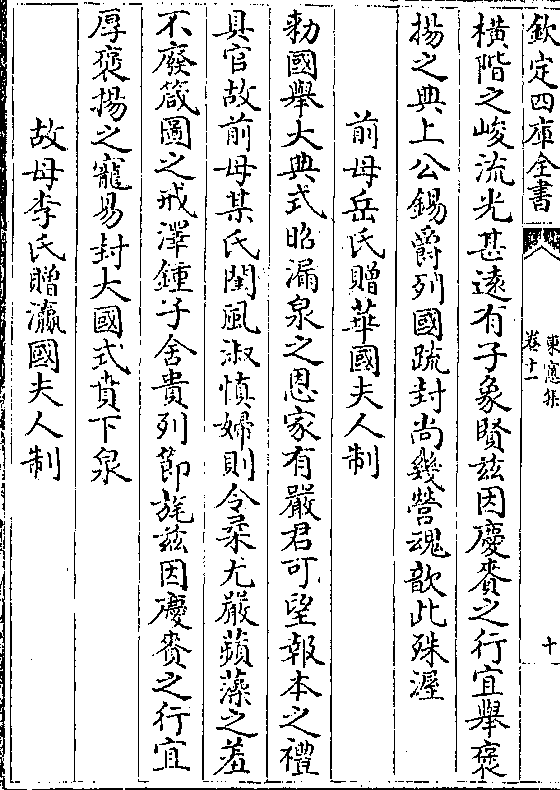 欽定四庫全書
東窻集
卷十一
十
橫階之峻流光甚遠有子象賢兹因慶賚之行宜舉褒
揚之典上公錫爵列國疏封尚幾營魂歆此殊渥
前母岳氏贈華國夫人制
勑國舉大典式昭漏泉之恩家有嚴君可望報本之禮
具官故前母某氏閨風淑慎婦則令柔尤嚴蘋藻之羞
不廢箴圖之戒澤鍾子舍貴列節旄兹因慶賚之行宜
厚褒揚之寵易封大國式賁下泉
故母李氏贈瀛國夫人制